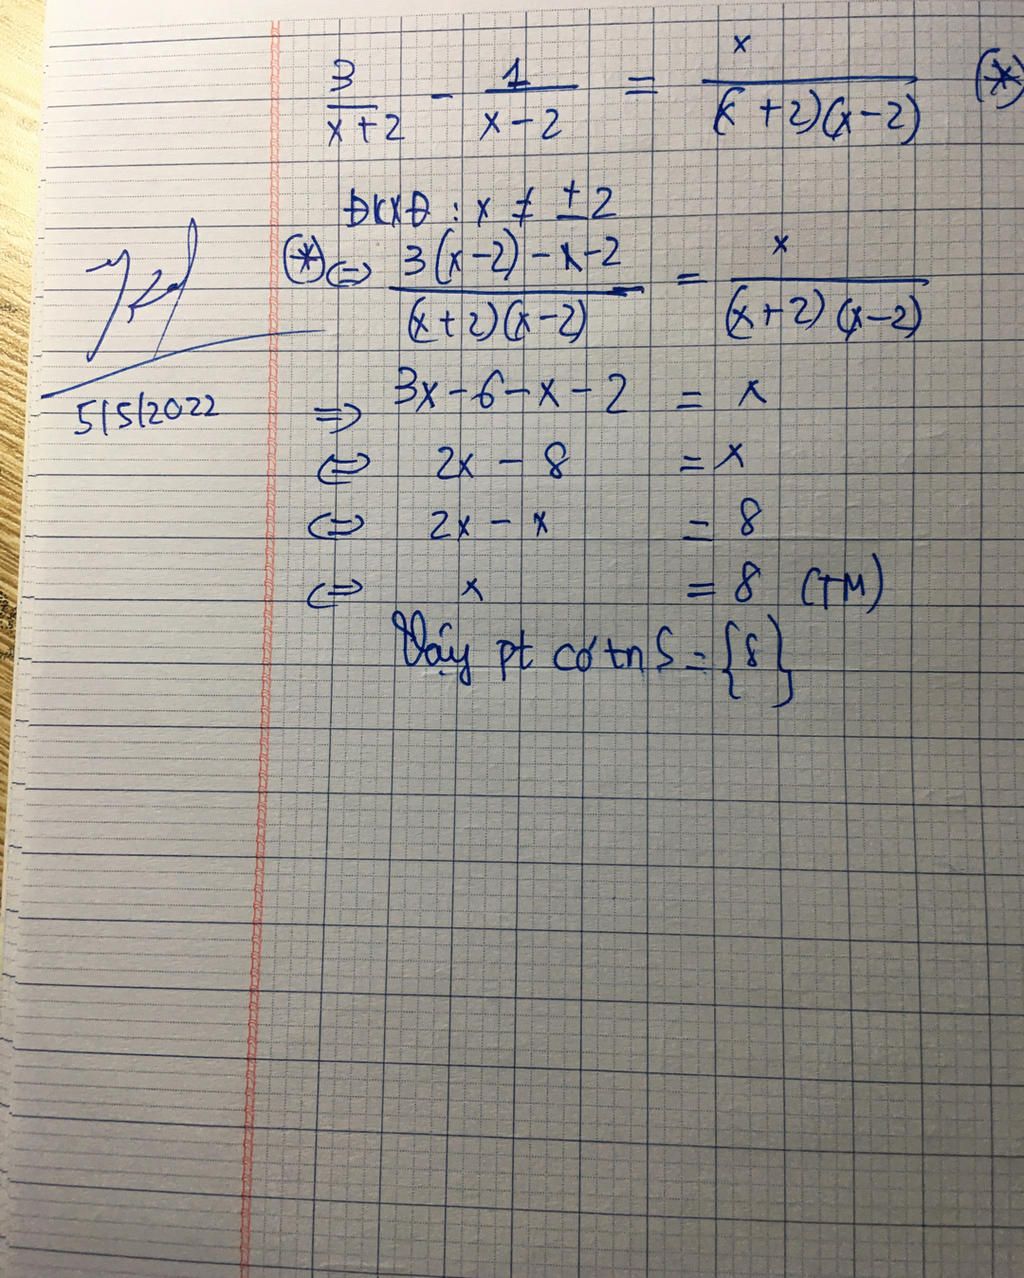 3/(x+2) - 1/(x-2) = x/((x+2)(x-2)) (*)
ĐKXĐ : x ≠ ±2
(*) ⇔ (3(x-2) - x-2)/((x+2)(x-2)) = x/((x+2)(x-2))
5/5/2022
⇒ 3x - 6 - x - 2 = x
⇔ 2x - 8 = x
⇔ 2x - x = 8
⇔ x = 8 (TM)
Vậy pt có tn S = {8}